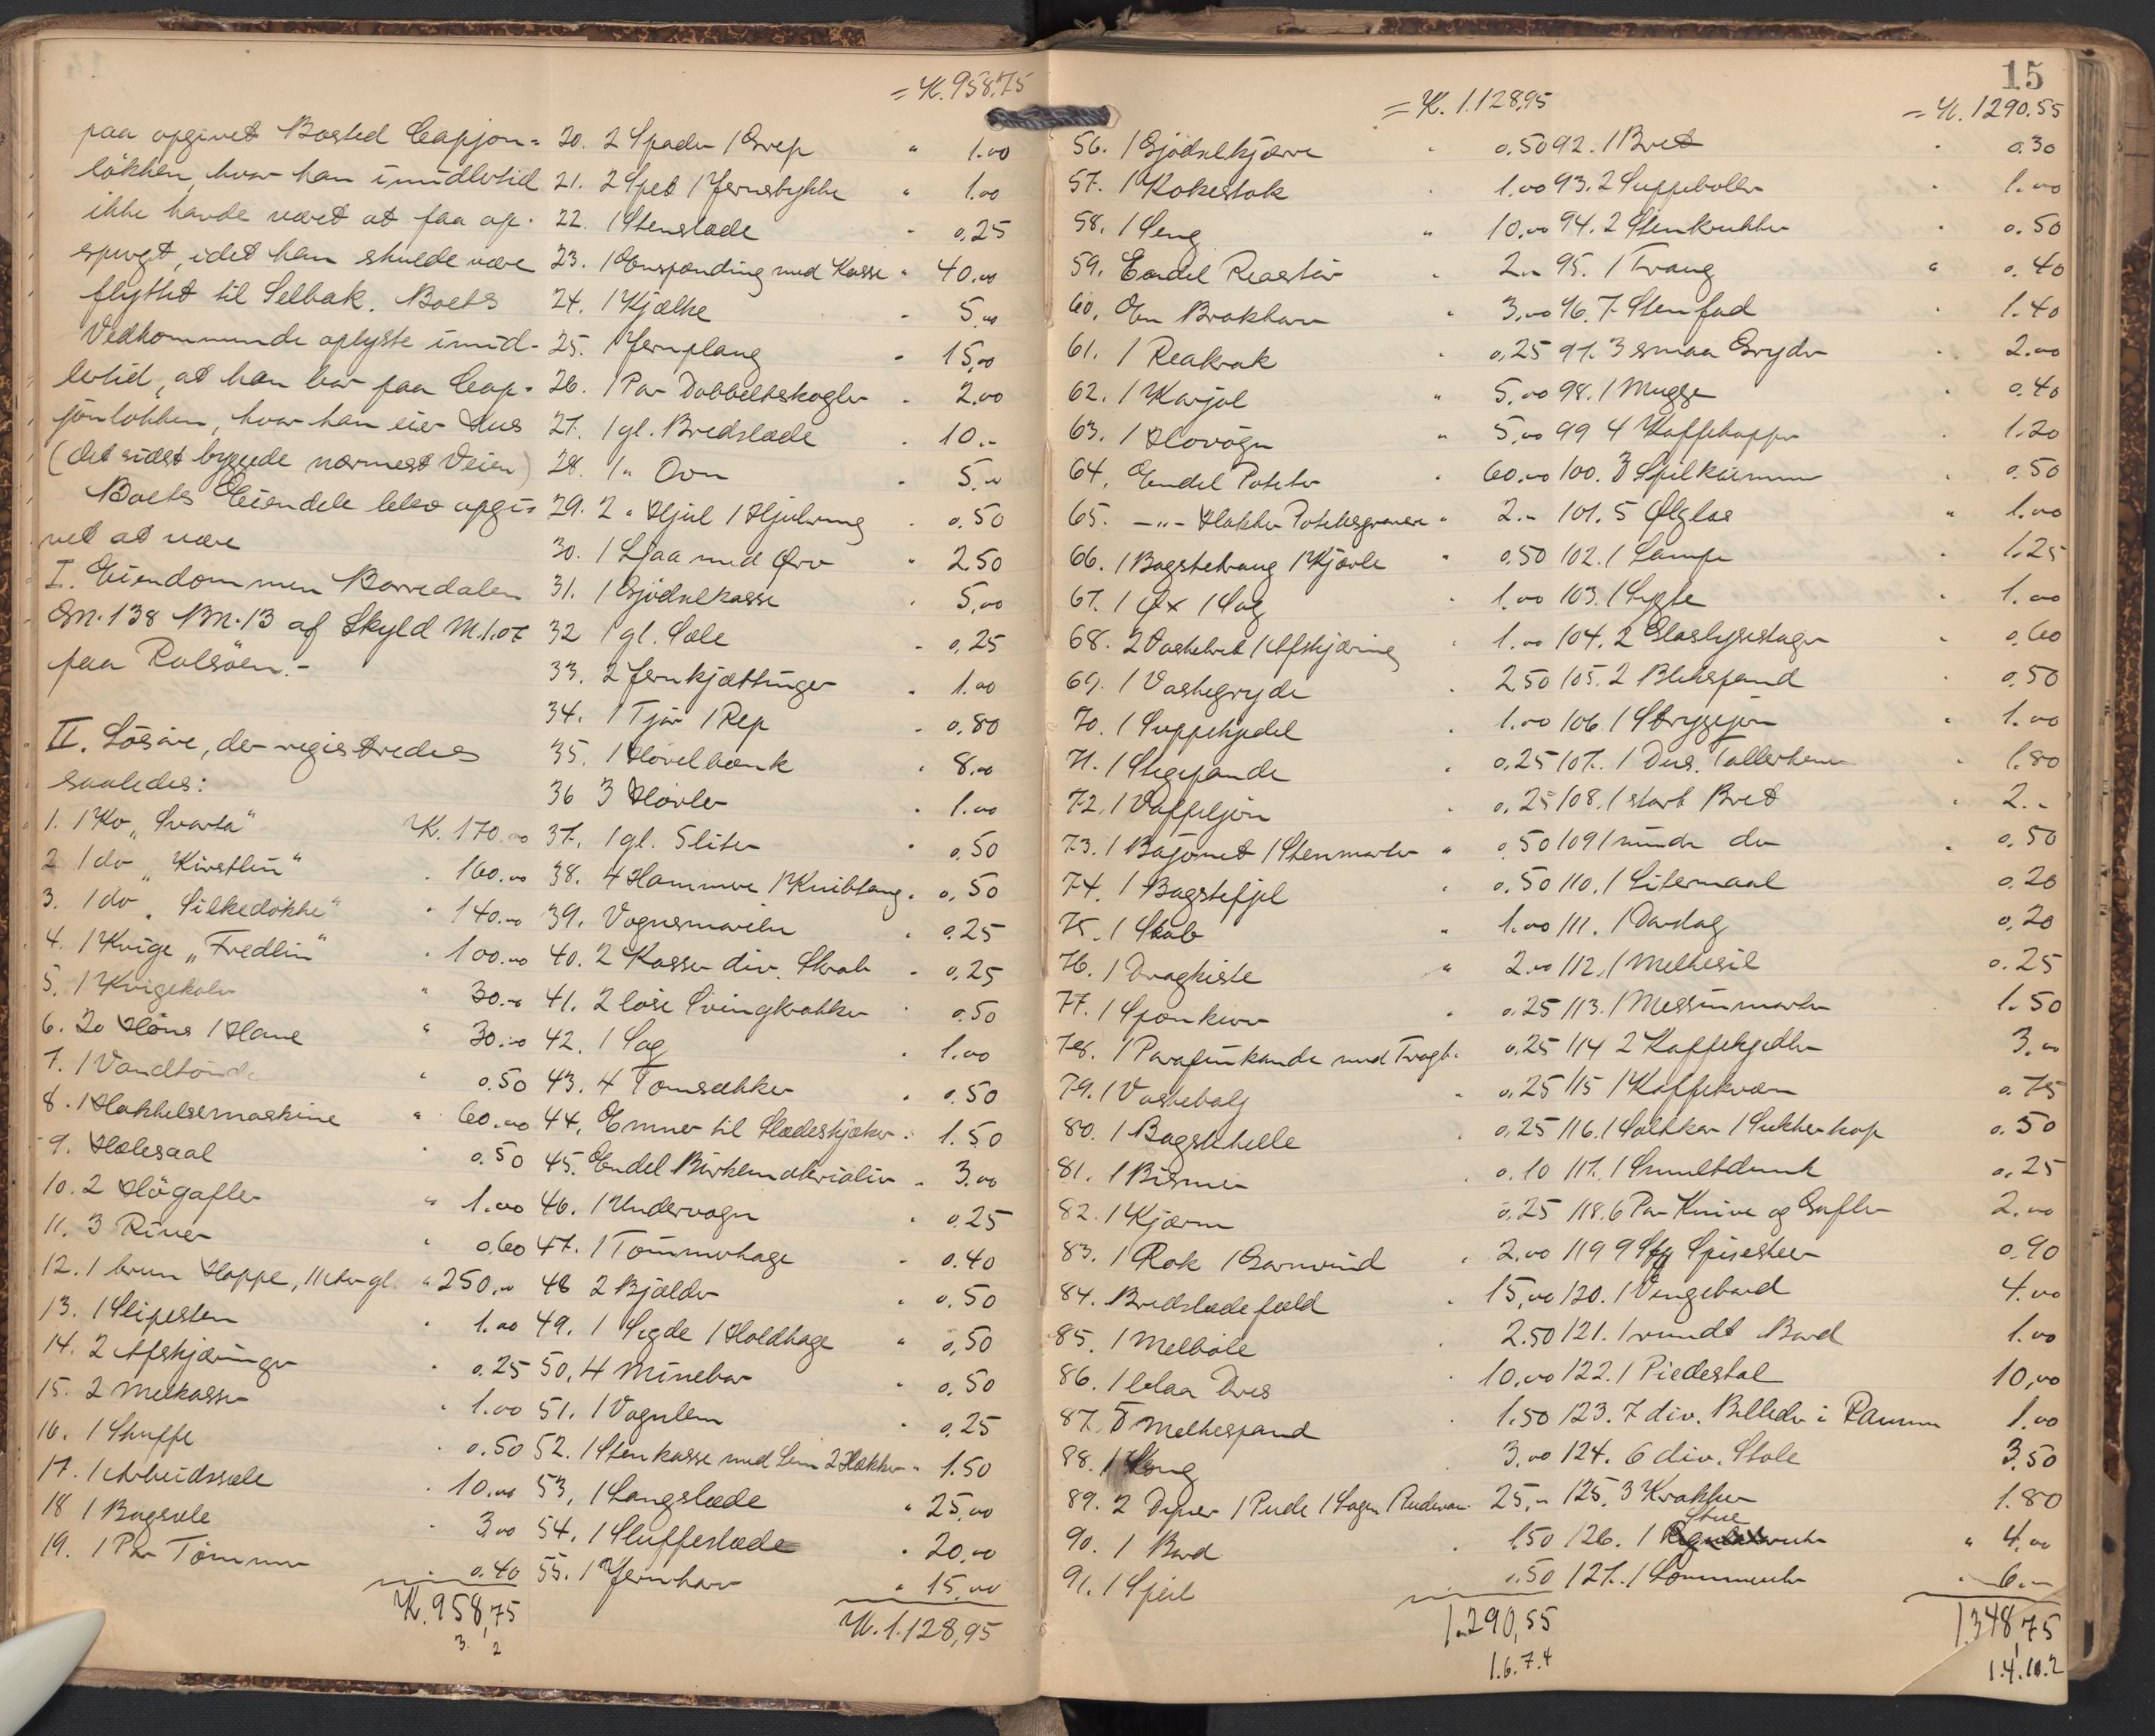 = K. 958,75
paa opgivet Bosted Capjon-
løkken, hvor han imidlertid
ikke havde været at faa op-
spurgt, idet han skulde være
flyttet til Selbak. Boets
Vedkommende oplyste imid-
lertid, at han bor paa Cap-
jonløkken, hvor han eier Hus
(det sidst byggede nærmest Veien)
Boets Eiendele blev opgi-
vet at være
I. Eiendommen Borredalen
Gn. 138 Bn. 13 af Skyld M. 1.07
paa Rolsøen.-
II. Løsøre, der registredes
saaledes:
1. 1 Ko „Svarta“ K. 170.00
2. 1 do „Kirstlin“ " 160.00
3. 1 do „Silkedokke“ " 140.00
4. 1 Kvige „Fredlin“ " 100.00
5. 1 Kvigekalv " 30.00
6. 20 Høns 1 Hane " 30.00
7. 1 Vandtønde " 0.50
8. 1 Hakkelsemaskine " 60.00
9. Hølesaal " 0.50
10. 2 Høgafler " 1.00
11. 3 River " 0.60
12. 1 brun Hoppe, 11 Aar gl. " 250.00
13. 1 Slipesten " 1.00
14. 2 Afskjæringer " 0.25
15. 2 Melkasser " 1.00
16. 1 Skuffe " 0.50
17. 1 Arbeidssele " 10.00
18 1 Bagsele " 3.00
19. 1 Par Tømmer " 0.40
K. 958,75
3. 2
20. 2 Spader 1 Grep " 1.00
21. 2 Spet 1 Jernstykke " 1.00
22. 1 Stenslæde " 0.25
23. 1 Enspænding med Kasse " 40.00
24. 1 Kjælke " 5.00
25. 1 Jernplaug " 15.00
26. 1 Par Dobbeltskogler " 2.00
27. 1 gl. Bredslæde " 10.-
28. 1 " Ovn " 5.00
29. 2 " Hjul 1 Hjulring " 0.50
30. 1 Ljaa med Orv " 2.50
31. 1 Gjødselkasse " 5.00
32 1 gl. Sele " 0.25
33. 2 Jernkjættinger " 1.00
34. 1 Tjor 1 Rep " 0.80
35. 1 Høvelbænk " 8.00
36 3 Høvler " 1.00
37. 1 gl. Sliter " 0.50
38. 4 Hammere 1 Knibtang " 0.50
39. Vognsmøreln " 0.25
40. 2 Kasser div. Skrab " 0.25
41. 2 løse Svingkrakker " 0.50
42. 1 Sag " 1.00
43. 4 Tomsækker " 0.50
44. Emner til Slædeskjæker " 1.50
45. Endel Birkematerialier " 3.00
46. 1 Undervogn " 0.25
47. 1 Tømmerhage " 0.40
48 2 Bjælder " 0.50
49. 1 Sigde 1 Holdhage " 0.50
50. 4 Minebor " 0.50
51. 1 Vognlem " 0.25
52. 1 Stenkasse med Lem 2 Hakker " 1.50
53. 1 Langslæde " 25.00
54. 1 Slufferslæde " 20.00
55. 1 Jernharv " 15.00
K. 1.128,95
15
= K. 1.128,95
56. 1 Gjødselkjærre " 0.50
57. 1 Kokestok " 1.00
58. 1 Seng " 10.00
59. Endel Reastør " 2.00
60. En Brakharv " 3.00
61. 1 Reakrak " 0.25
62. 1 Karjol " 5.00
63. 1 Høvogn " 5.00
64. Endel Poteter " 60.00
65. -"- Hakker Potetesgrever " 2.-
66. 1 Bagstetraug 1 Kjævle " 0.50
67. 1 Øx 1 Sag " 1.00
68. 2 Vaskebræt 1 Afskjæring " 1.00
69. 1 Vaskegryde " 2.50
70. 1 Suppekjedel " 1.00
71. 1 Stegepande " 0.25
72. 1 Vaffeljern " 0.25
73. 1 Bajonet 1 Stenmorter " 0.50
74. 1 Bagstefjel " 0.50
75. 1 Skab " 1.00
76. 1 Dragkiste " 2.00
77. 1 Sponkurv " 0.25
78. 1 Parafinkande med Tragt " 0.25
79. 1 Vaskebalj " 0.25
80. 1 Bagstehelle " 0.25
81. 1 Bismer " 0.10
82. 1 Kjærn 0.25
83. 1 Rok 1 Garnvind " 2.00
84. Bredslædefæld " 15.00
85. 1 Melbøle " 2.50
86. 1 blaa Dres " 10.00
87. 5 Melkespand " 1.50
88. 1 Seng 3.00
89. 2 Dyner 1 Pude 1 Lagen Pudevar 25.-
90. 1 Bord " 1.50
91. 1 Speil 0.50
1.290,55
1.6.7.4
= K. 1290.55
92. 1 Bret " 0.30
93. 2 Suppeboller " 1.00
94. 2 Stenkrukker " 0.50
95. 1 Traug " 0.40
96. 7 Stenfad " 1.40
97. 3 smaa Gryder " 2.00
98. 1 Mugge " 0.40
99 4 Kaffekopper " 1.20
100. 3 Spilkummer " 0.50
101. 5 Ølglas " 1.00
102. 1 Lampe " 1.25
103. 1 Lygte " 1.00
104. 2 Glaslysestager " 0.60
105. 2 Blikspand " 0.50
106. 1 Strygejern " 1.00
107. 1 Dus. Tallerkener " 1.80
108. 1 stort Bret " 2.-
109 1 mindre do " 0.50
110. 1 Litermaal 0.20
111. 1 Dørslag 0.20
112. 1 Melkesil 0.25
113. 1 Messinmorter 1.50
114 2 Kaffekjedler 3.00
115 1 Kaffekværn 0.75
116. 1 Saltkar 1 Sukkerkop 0.50
117. 1 Smultdunk 0.25
118. 6 Par Knive og Gafler 2.00
119 9 Stk Spiseskeer 0.90
120. 1 Vingebord 4.00
121. 1 rundt Bord 1.00
122. 1 Piedestal 10.00
123. 7 div. Billeder i Ramme 1.00
124. 6 div. Stole 3.50
125. 3 Krakker 1.80
126. 1 Stue " 4.00
127. 1 Lommeuhr " 6.-
1.348,75
1.4.10.2